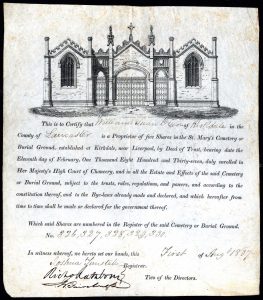 This is to Certify that William
County of Lancaster is a Proprietor of five Shares in the St. Mary's Cemetery or
Burial Ground, established at Kirkdale, near Liverpool, by Deed of Trust, bearing date the
Eleventh day of February, One Thousand Eight Hundred and Thirty-seven, duly enrolled in
Her Majesty's High Court of Chancery, and in all the Estate and Effects of the said Cemetery
or Burial Ground, subject to the trusts, rules, regulations, and powers, and according to the
constitution thereof, and to the Bye-laws already made and declared, and which hereafter from
time to time shall be made or declared for the government thereof.
Which said Shares are numbered in the Register of the said Cemetery or Burial Ground.
No. 326, 327, 328, 329, 330
In witness whereof, we hereto set our hands, this First of Augt 1887
Joshua Registrar.
Two of the Directors.